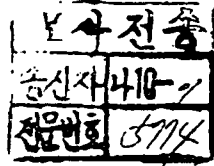 보사전송
송신자 410-1
전문번호 5774